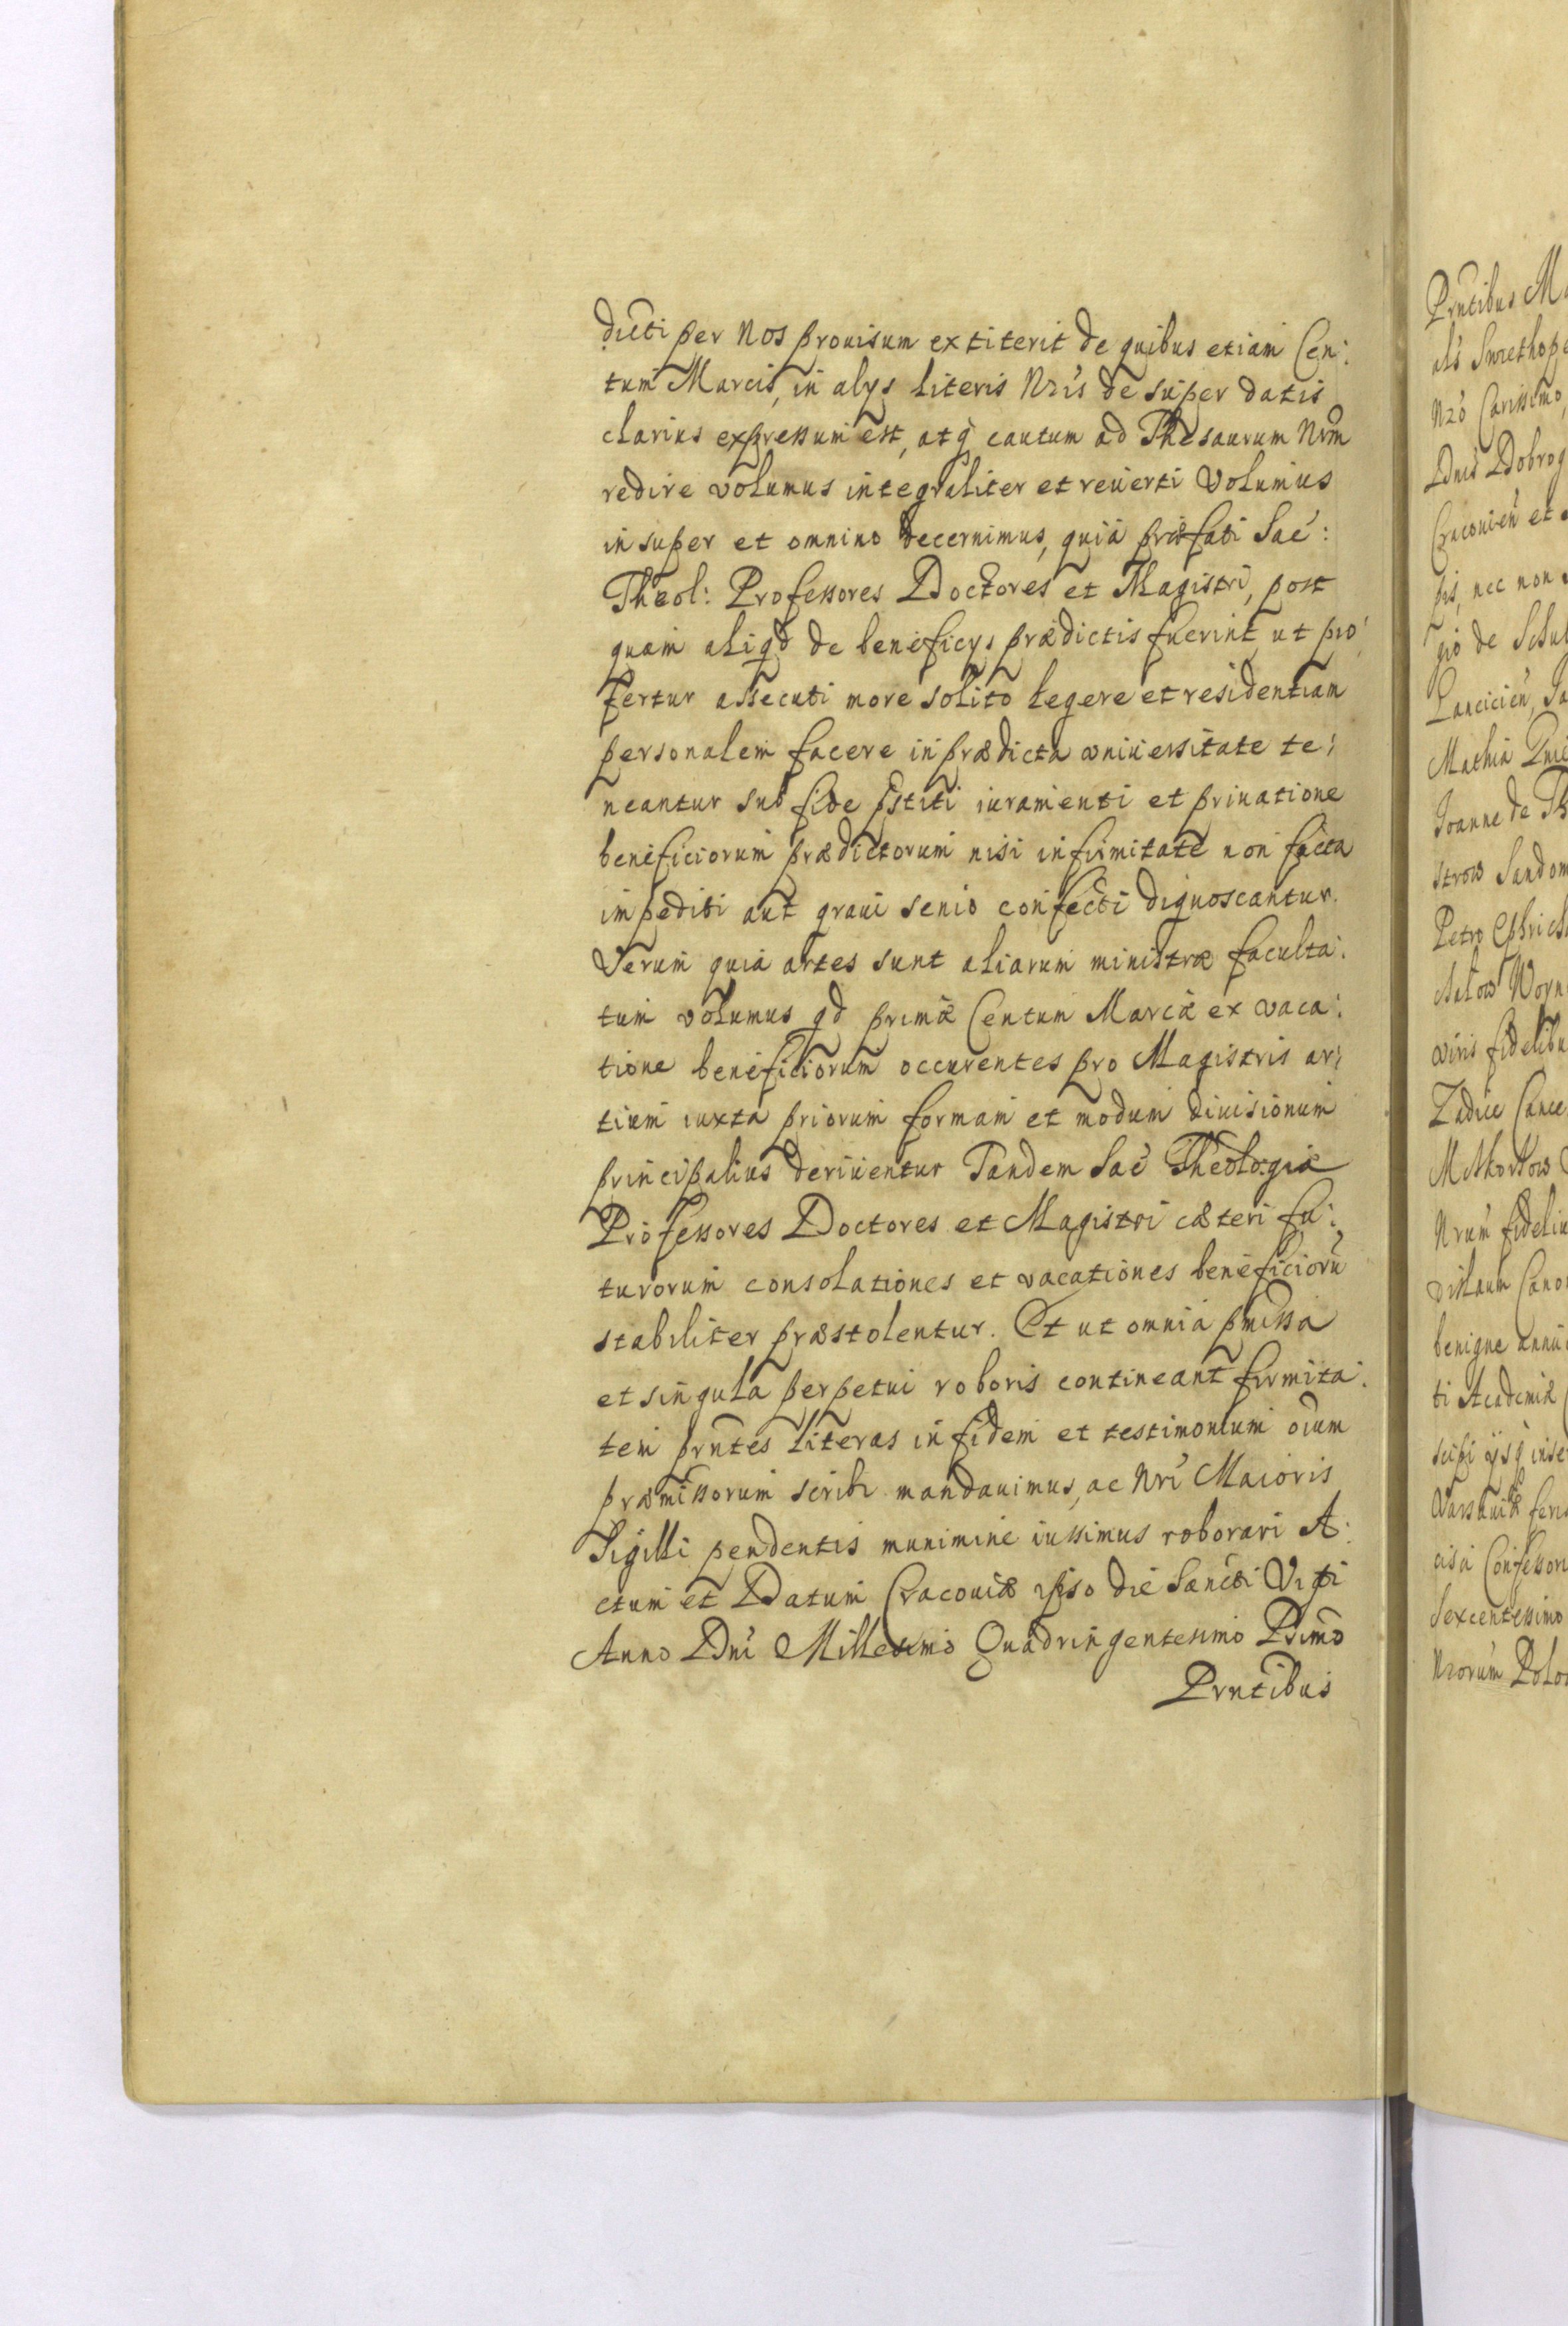 dicti per Nos prouisum extiterit de quibus etiam Cen:
tum Marcis, in alys literis Nris de super datis
clarius expressum est, atq cautum ad Thesaurum Nrm
redire volumus integraliter et reuerti Volumus
in super et omnino decernimus, quia præfati Sac:
Theol: Professores Doctores et Magistri, post
quam aliqd de beneficys prædictis fuerint ut pro:
fertur assecuti more solito legere et residentiam
personalem facere in prædicta vniuersitate te:
neantur sub fide pstiti iuramenti et priuatione
beneficiorum prædictorum nisi infirmitate non ficta
impediti aut graui senio confecti dignoscantur.
Verum quia artes sunt aliarum ministræ faculta:
tum volumus qd primæ Centum Marcæ ex vaca:
tione beneficiorum occurentes pro Magistris ar:
tium iuxta priorum formam et modum diuisionum
principalius deriuentur Tandem Sac Theologiæ
Professores Doctores et Magistri cæteri fu:
turorum consolationes et vacationes beneficioru
stabiliter præstolentur. Et ut omnia pmissa
et singula perpetui roboris contineant firmita:
tem prntes literas in fidem et testimonium oium
præmissorum scribi mandauimus, ac Nri Maioris
Sigilli pendentis munimine iussimus roborari A:
ctum et Datum Cracouiæ ipso die Sancti Viti
Anno Dni Millesimo Quadringentesimo Primo
Prntibus
Prntibus
als
Nro Carissimo,
Dnis Dobrog
Cracouien et
pis, nec non
gio de
Lancicien,
Mathia
Joanne de
strow Sandom
Petro
viris fidelibu
Zadice Cance
Nrum fideliu
benigne annu
ti Academiæ
Varsauiæ feri
cisci Confessori
Sexcentesimo
Nrorum Polo